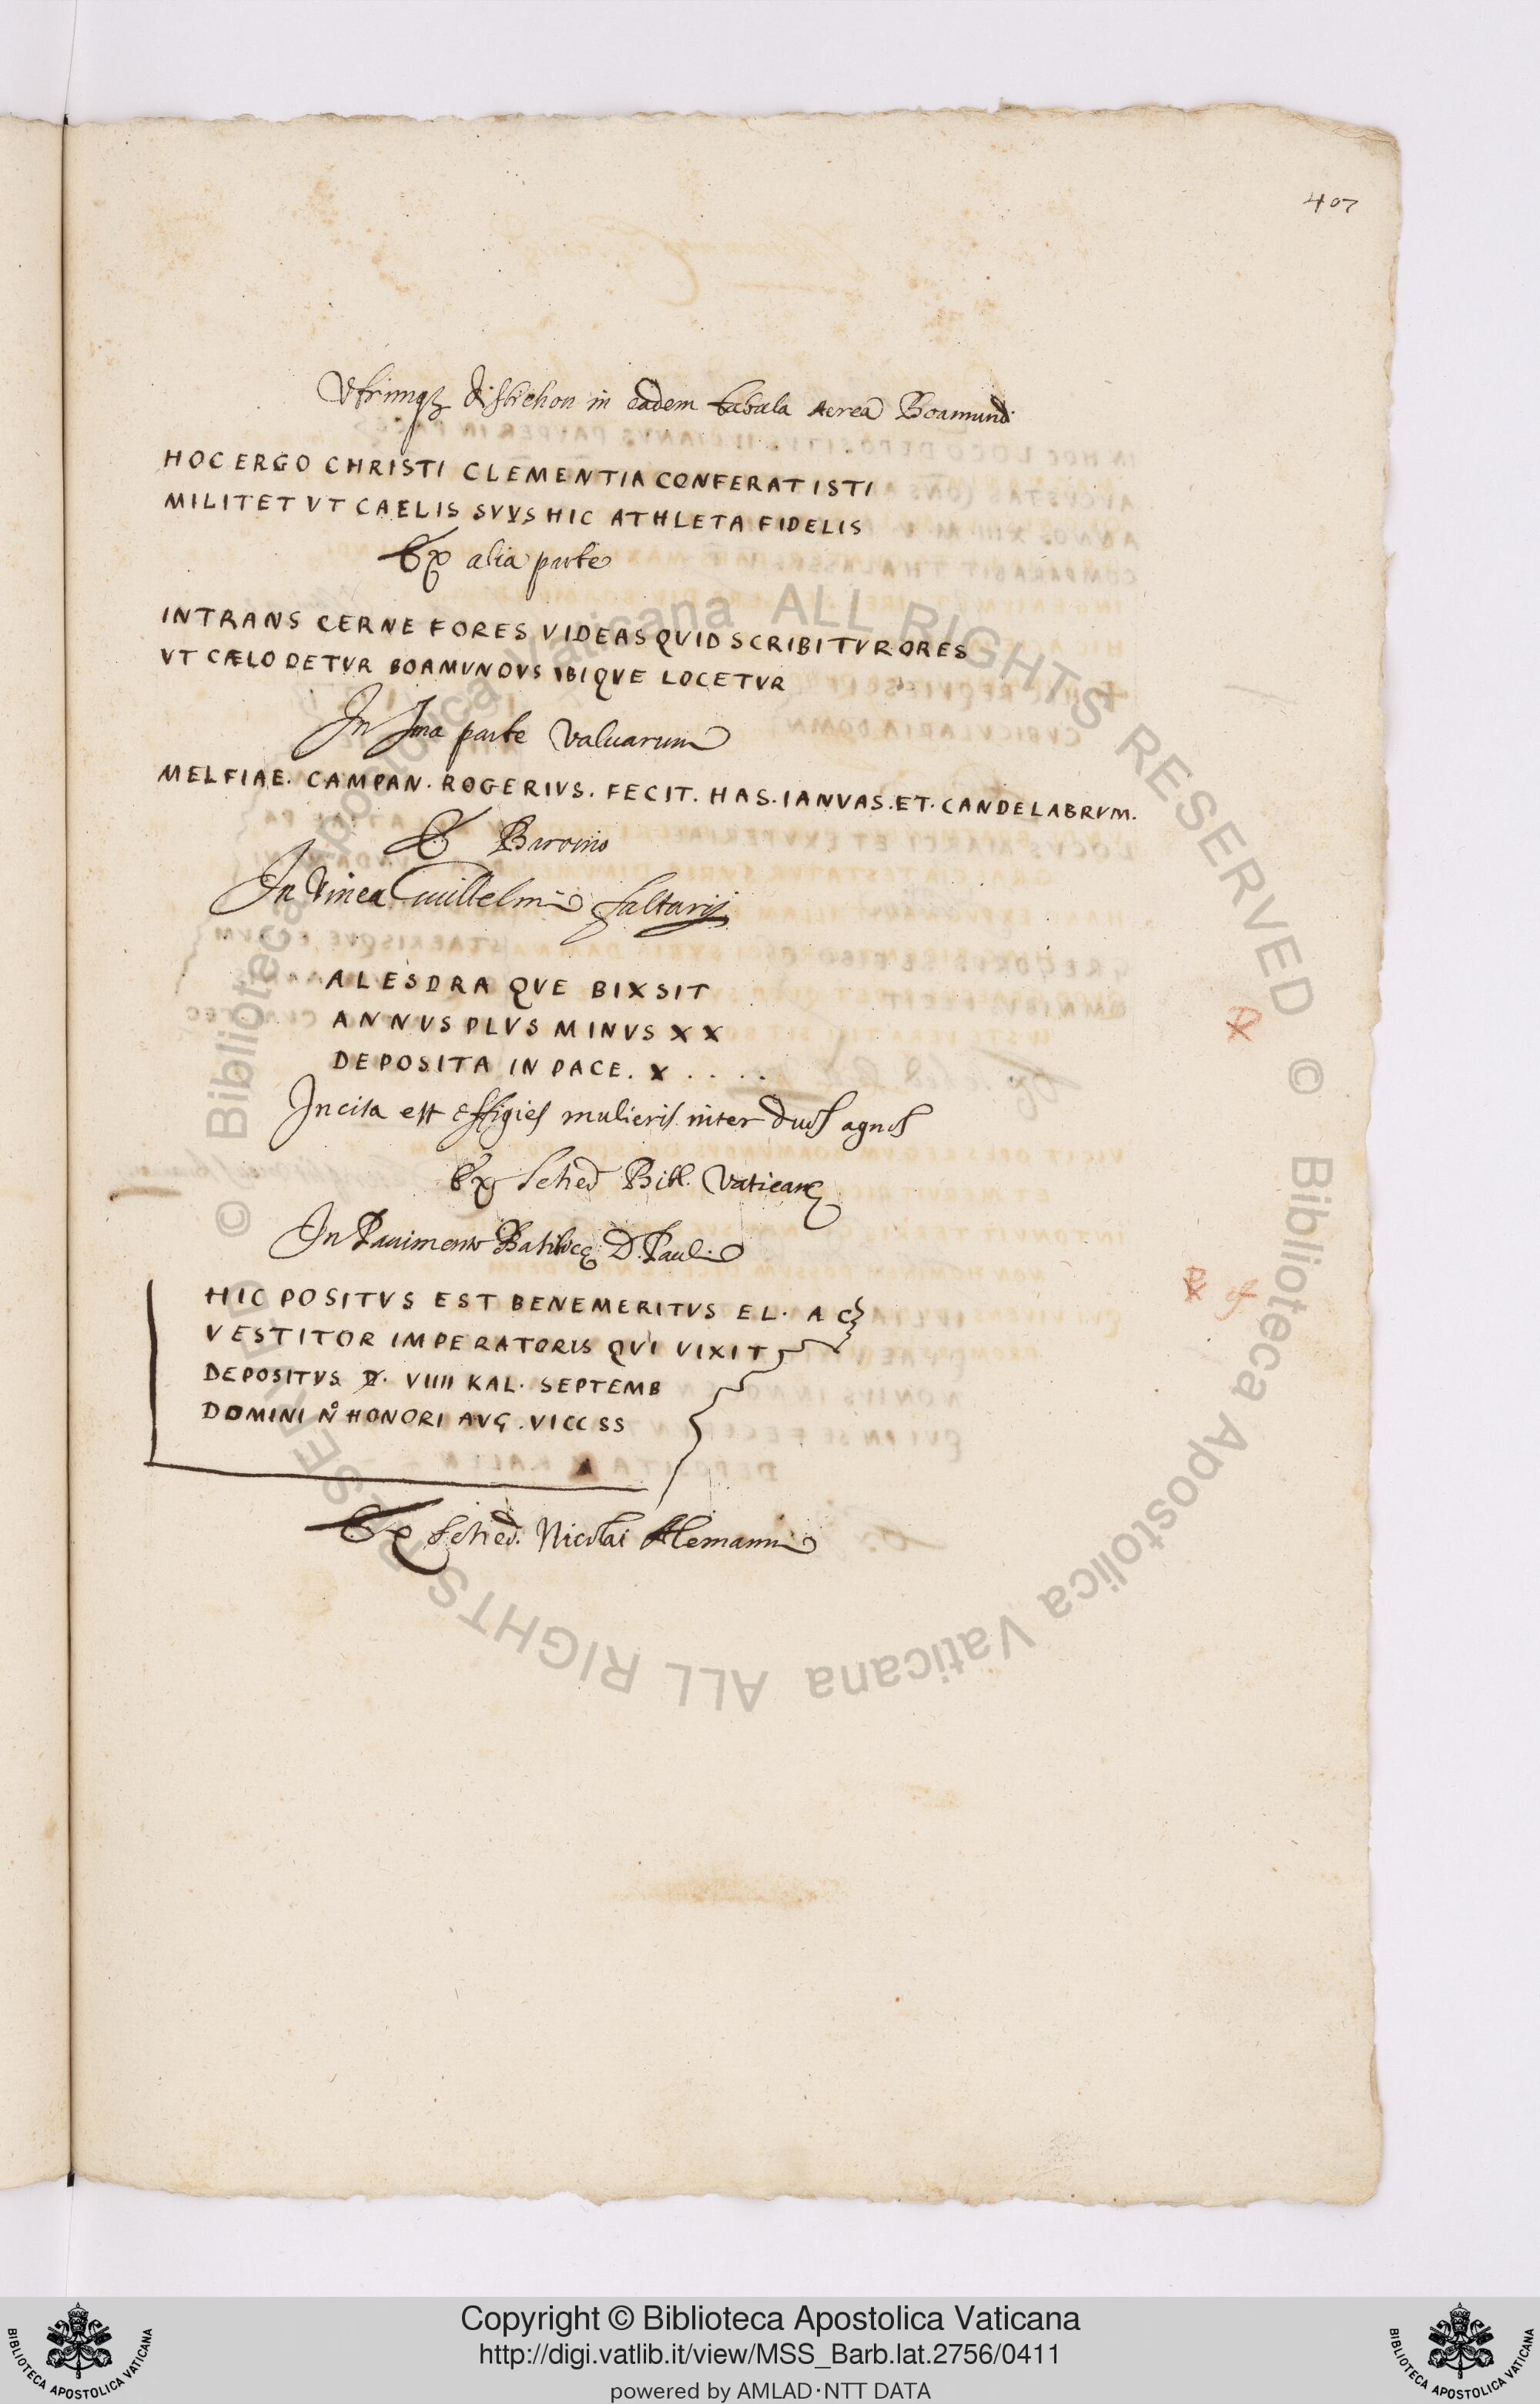 407
Vtrinq; distichon in eadem tabula aerea Boamundi
HOC ERGO CHRISTI CLEMENTIA CONFERAT ISTI
MILITET VT CAELIS SVVS HIC ATHLETA FIDELIS
Ex alia parte
INTRANS CERNE FORES VIDEAS QVID SCRIBITVR ORES
VT CÆLO DETVR BOAMVNDVS IBIQVE LOCETVR
In Ima parte Valuarum
MELFIAE. CAMPAN. ROGERIVS. FECIT. HAS. IANVAS. ET. CANDELABRVM.
E Baronio
In Vinea Guillelmi Saltarij
ALESDRA QVE BIXSIT
ANNVS PLVS MINVS XX
DEPOSITA IN PACE. X . . . .
Incisa est effigies mulieris inter duos agnos
Ex Sched Bibl. Vaticanę
In Pauimento Basilicę D. Pauli
HIC POSITVS EST BENEMERITVS EL. A C
VESTITOR IMPERATORIS QVI VIXIT
DEPOSITVS D. VIIII KAL. SEPTEMB
DOMINI N HONORI AVG. VICC SS
Ex Sched. Nicolai Alemanni
© Biblioteca Apostolica Vaticana ALL RIGHTS RESERVED © Biblioteca Apostolica Vaticana ALL RIGHTS RESERVED
Copyright © Biblioteca Apostolica Vaticana
http://digi.vatlib.it/view/MSS_Barb.lat.2756/0411
powered by AMLAD·NTT DATA
BIBLIOTECA APOSTOLICA VATICANA
BIBLIOTECA APOSTOLICA VATICANA